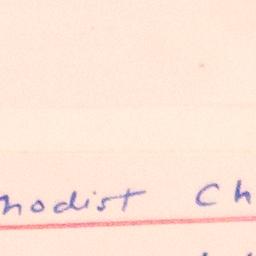 hodist Ch